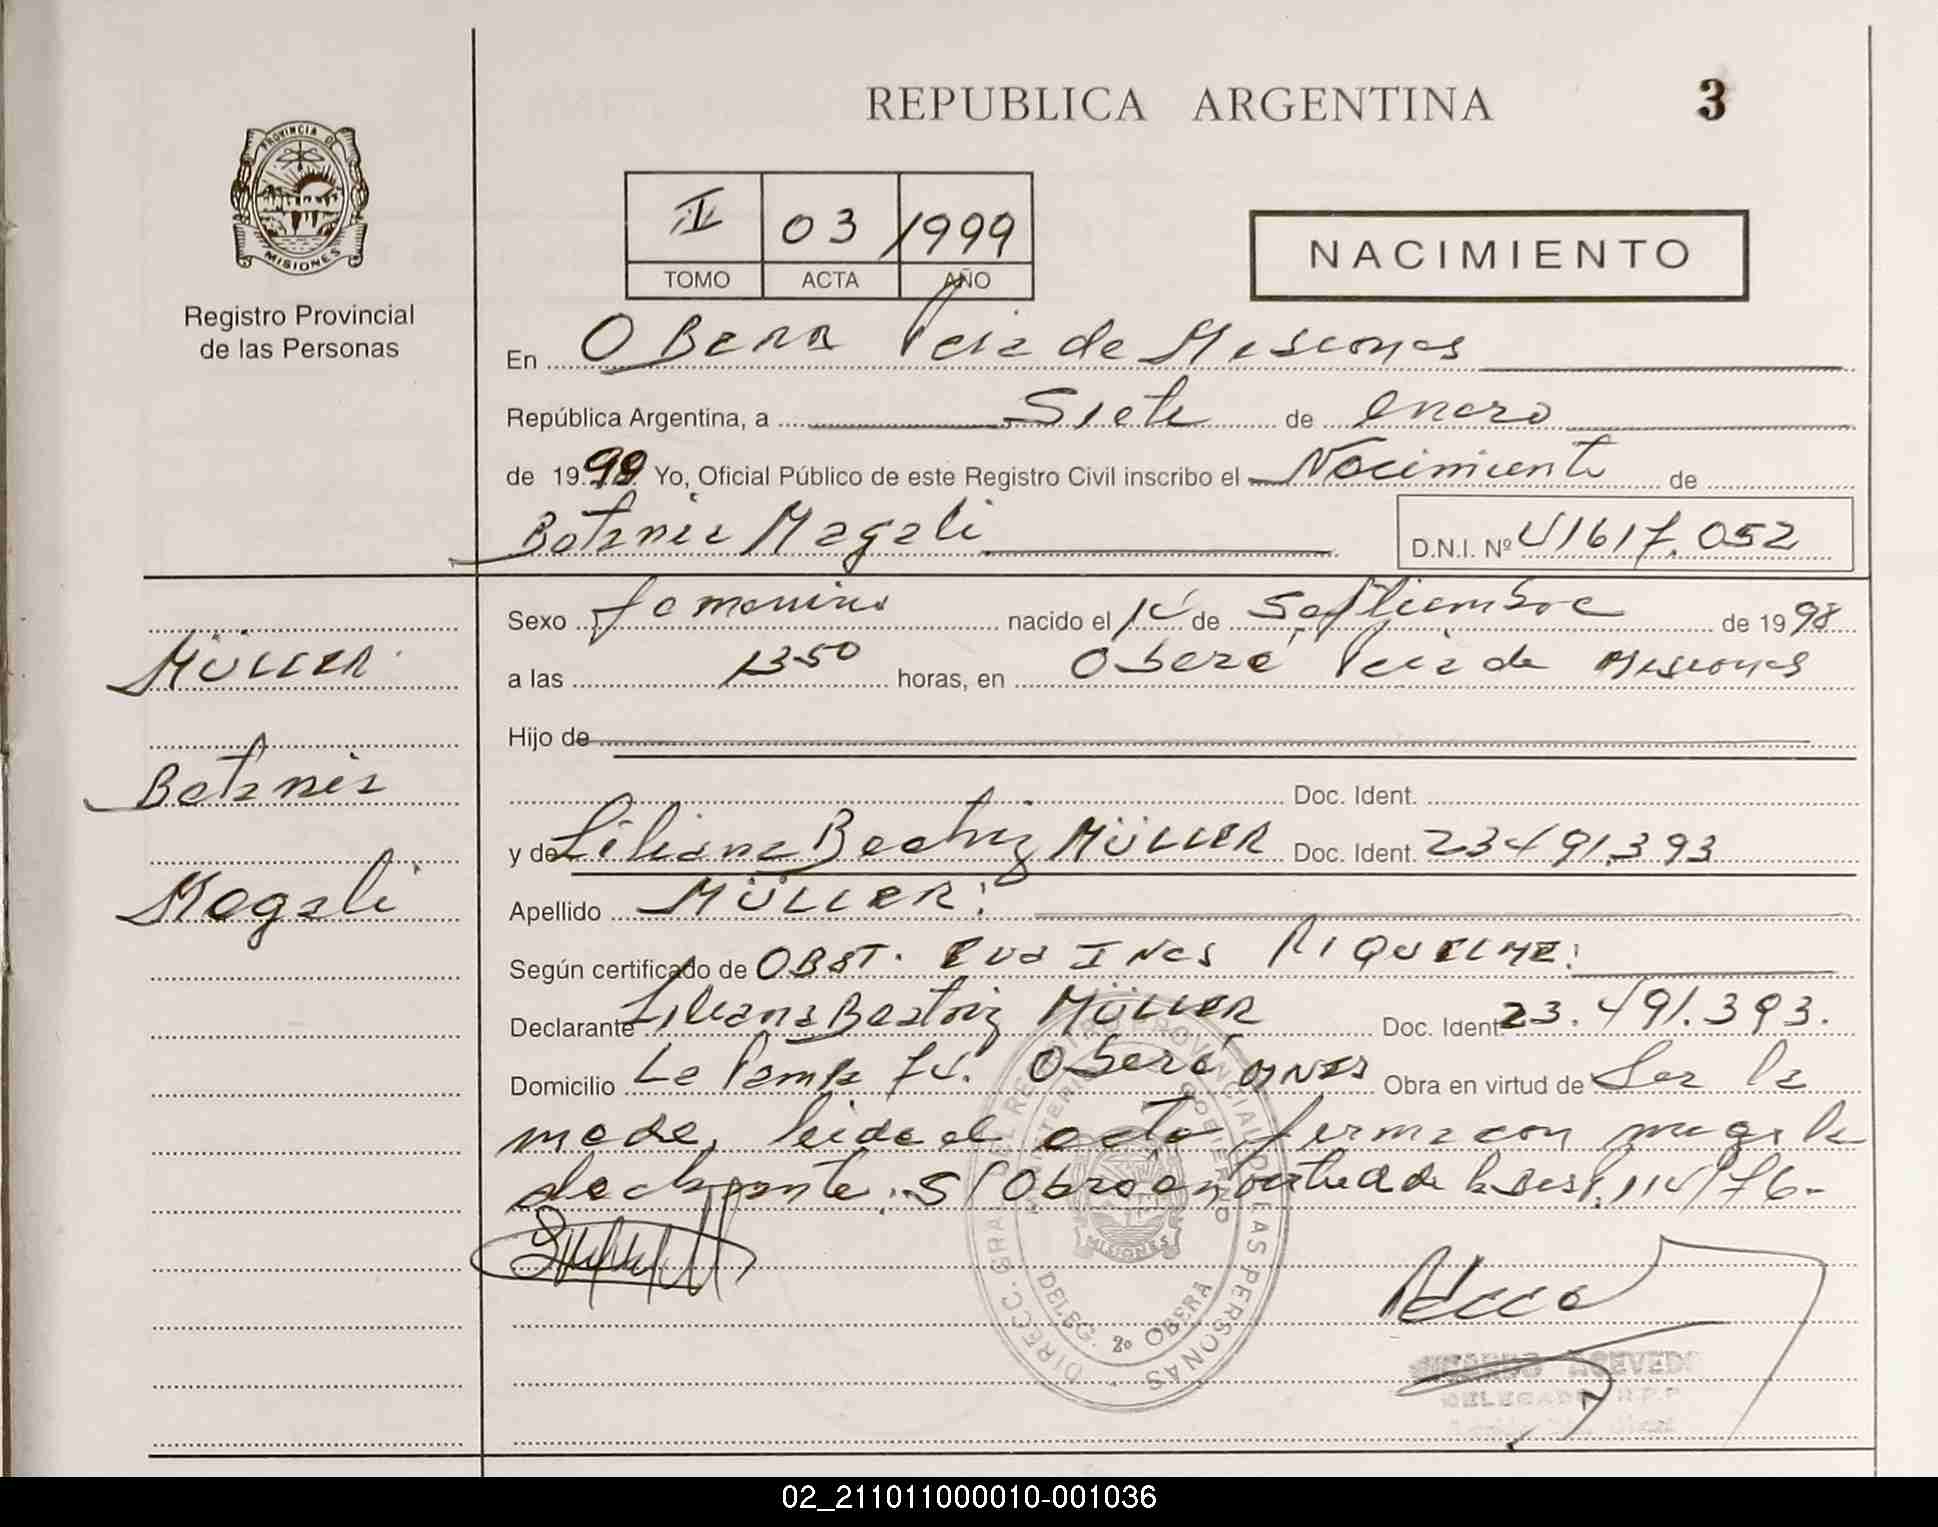 REPUBLICA ARGENTINA
3
PROVINCIA DE
MISIONES
Registro Provincial
de las Personas
I 03 /1999
TOMO ACTA AÑO
NACIMIENTO
En Obera Pcia de Misiones
República Argentina, a Siete de enero
de 1999 Yo, Oficial Público de este Registro Civil inscribo el Nacimiento de
Betania Magali
D.N.I. Nº 41617.052
Sexo femenino nacido el 14 de Septiembre de 1998
a las 1350 horas, en Oberá Pcia de Misiones
Hijo de
Doc. Ident.
y de Liliana Beatriz MÜLLER Doc. Ident. 23491.393
Apellido MÜLLER:
Según certificado de OBST. Eva Ines RIQUELME:
Declarante Liliana Beatriz MÜLLER Doc. Ident. 23.491.393.
Domicilio La Pampa 74. Oberá Mnes Obra en virtud de Ser la
madre, leida el acta firma conmigo la
declarante. S/ Obró en virtud de la Disp. 114/76.-
MÜLLER
Betania
Magali
DIRECC. GRAL. DEL REGISTRO PROVINCIAL DE LAS PERSONAS
MINISTERIO GOBIERNO
MISIONES
DELEG. 2º OBERÁ
ACEVEDO
DELEGADO R.P.P.
02_211011000010-001036